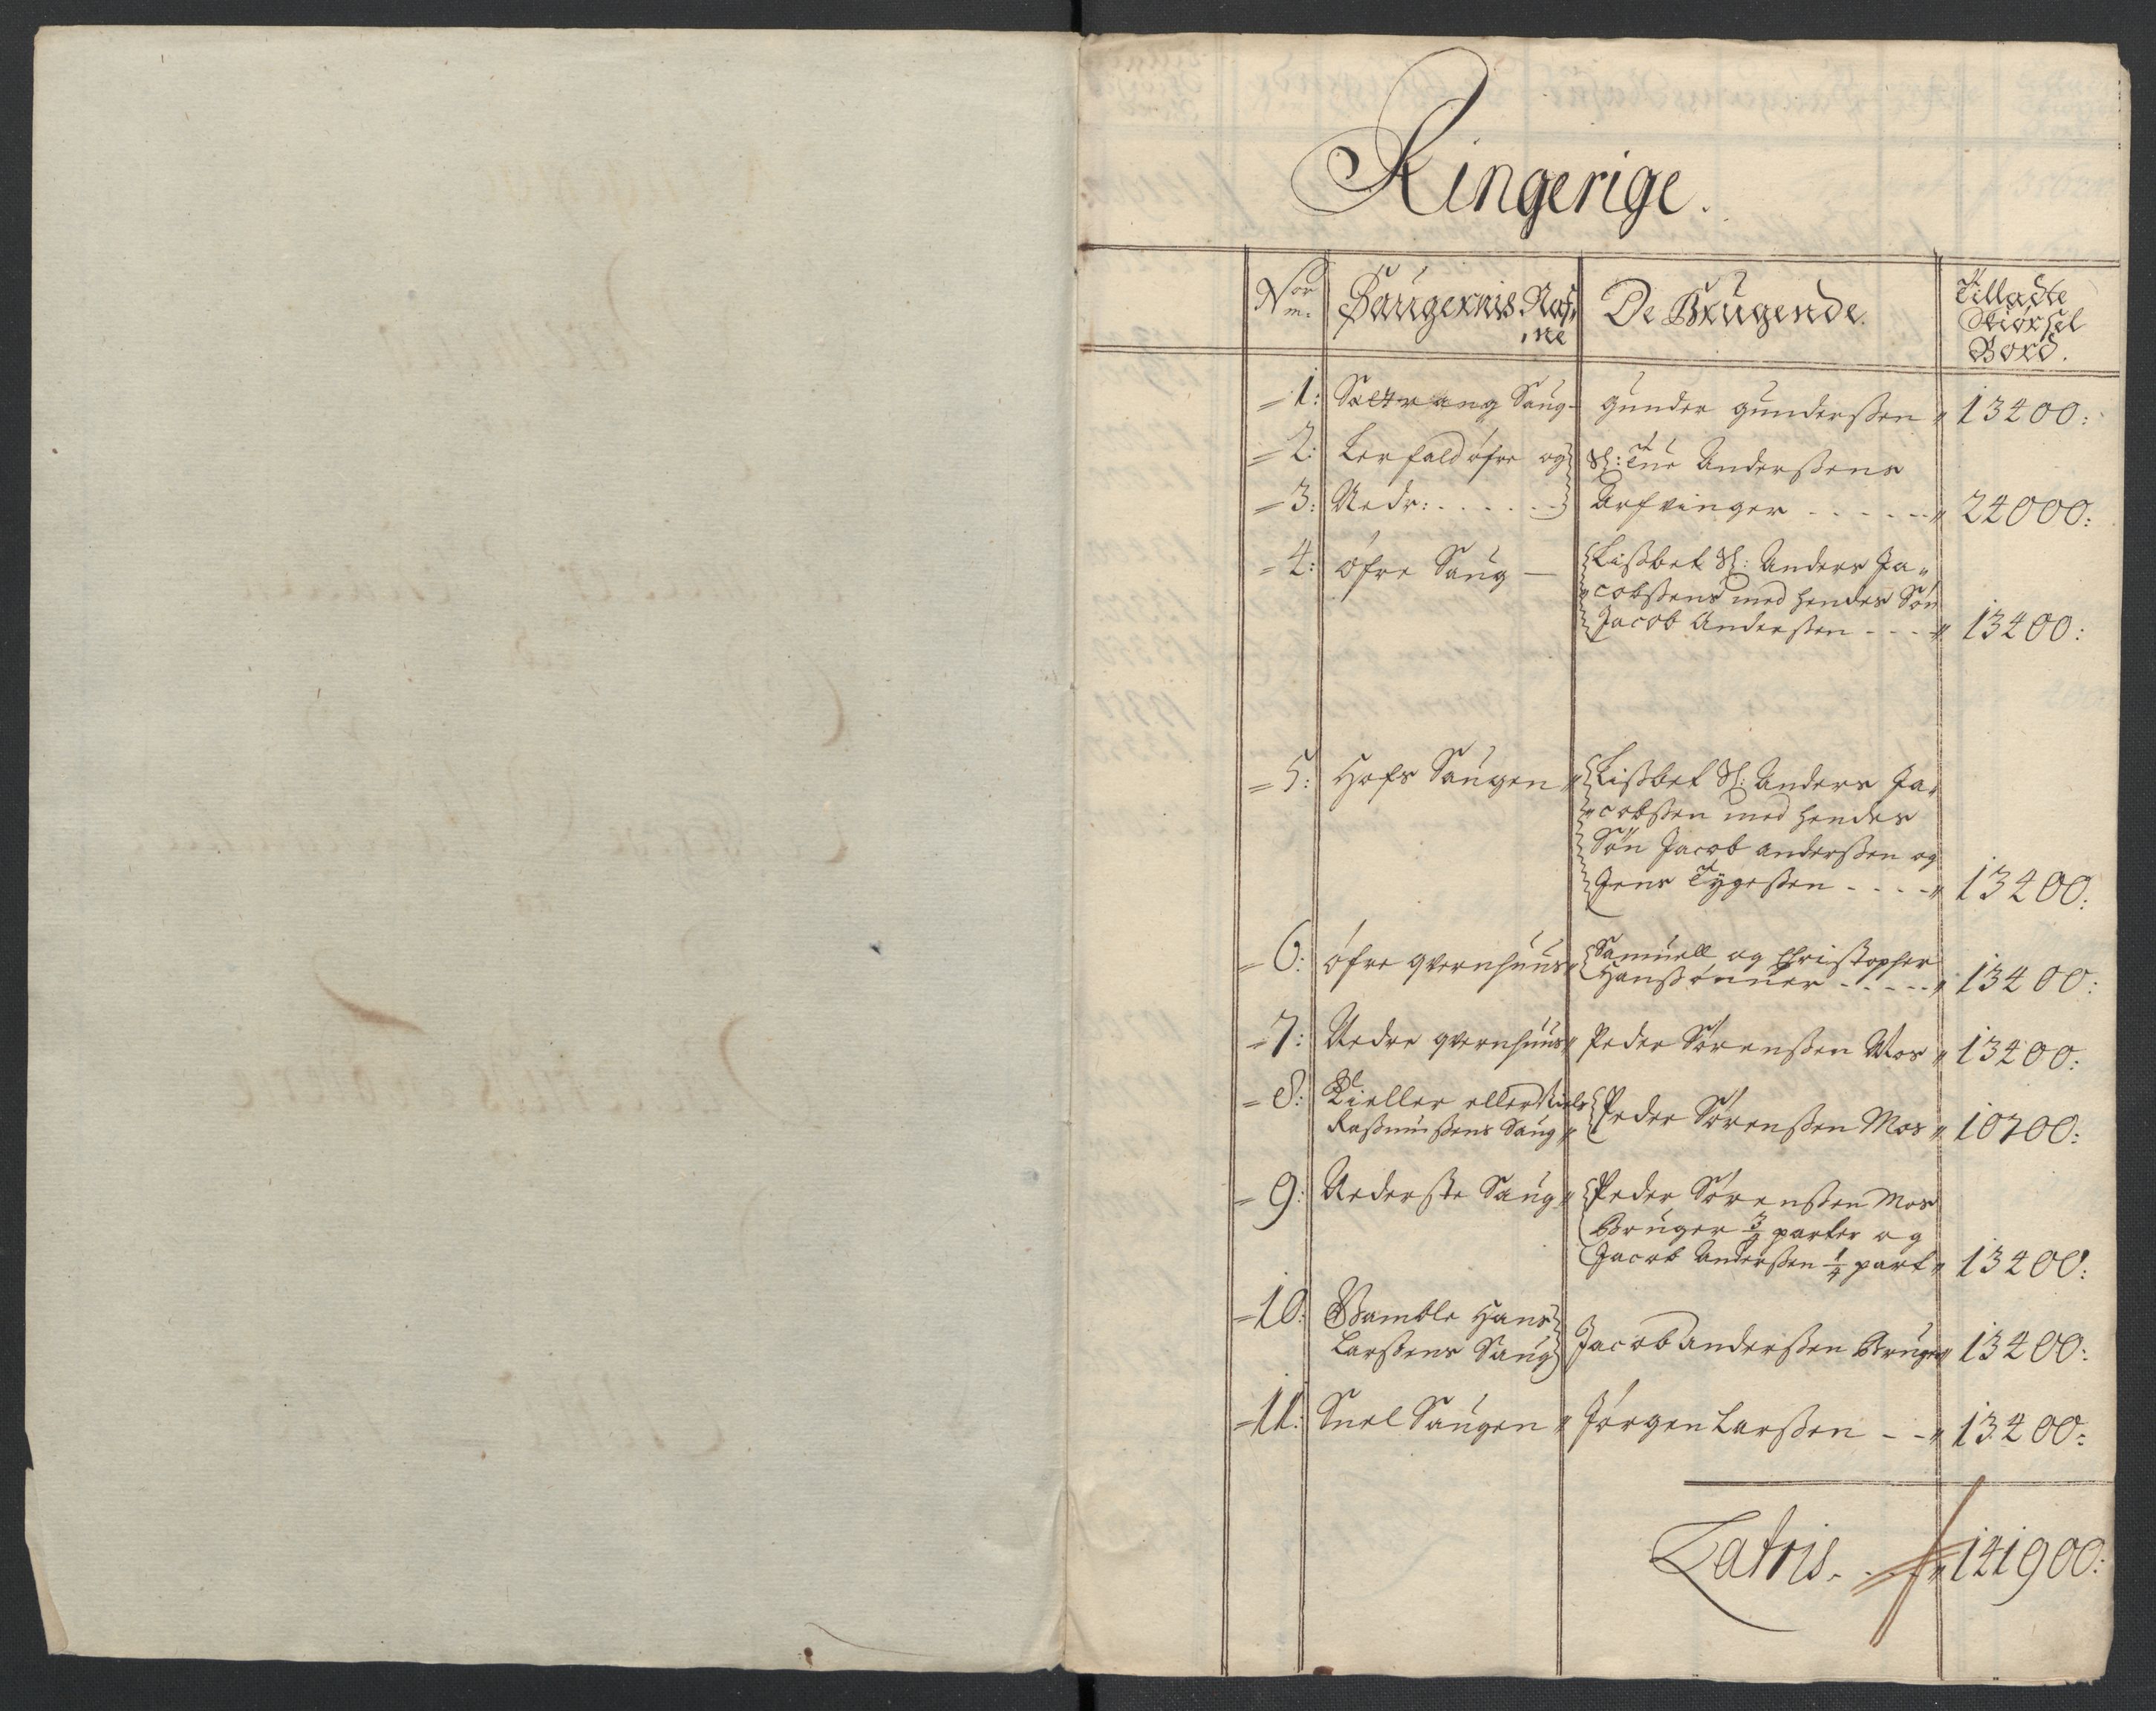 Ringerige.
Norm. Saugernis Naf,ne De Brugende. Tilladte Skiørsel Bord.
1: Sætrang Saug gunder gunderßen 13400:
2: Lerfald øfre og Sl: Tue Anderßens
3: Nedr: . . . . . . Arfvinger . . . . . 24000:
4: øfre Saug — Lißbet Sl: Anders Ja„
cobßens med hendes Søn
Jacob Anderßen - - - 13400:
5: Hofs Saugen Lißbet Sl: Anders Ja„
cobßen med hendes
Søn Jacob anderßen og
Jens Tygeßen - - - - 13400:
6: øfre qvernhuus Samuell og Christopher
Hanßønner . . . . . 13400:
7: Nedre qvernhuus Peder Sørenßen Mos 13400:
8: Kieller eller Niels
Raßmußens Saug Peder Sørenßen Mos 10700:
9: Nederste Saug Peder Sørenßen Mos
Bruger 3/4 parter og
Jacob Anderßen 1/4 part 13400:
10: Bamble Hans
Larßens Saug Jacob anderßen Bruger 13400:
11: Snel Saugen Jørgen Larßen - - 13400:
Latris . . . 141900: